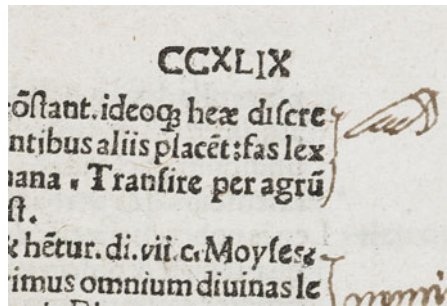 CCXLIX
cõſtant.ideoqꝫ heæ diſcre
ntibus aliis placẽt:fas lex
mana . Tranſire per agrũ
ſt.
hẽtur.di.vii.c.Moyſes
rimus omnium diuinas le